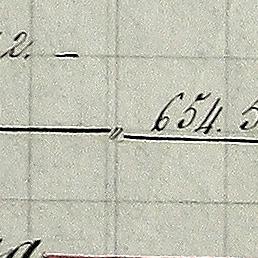 12. —
„ 654. 5